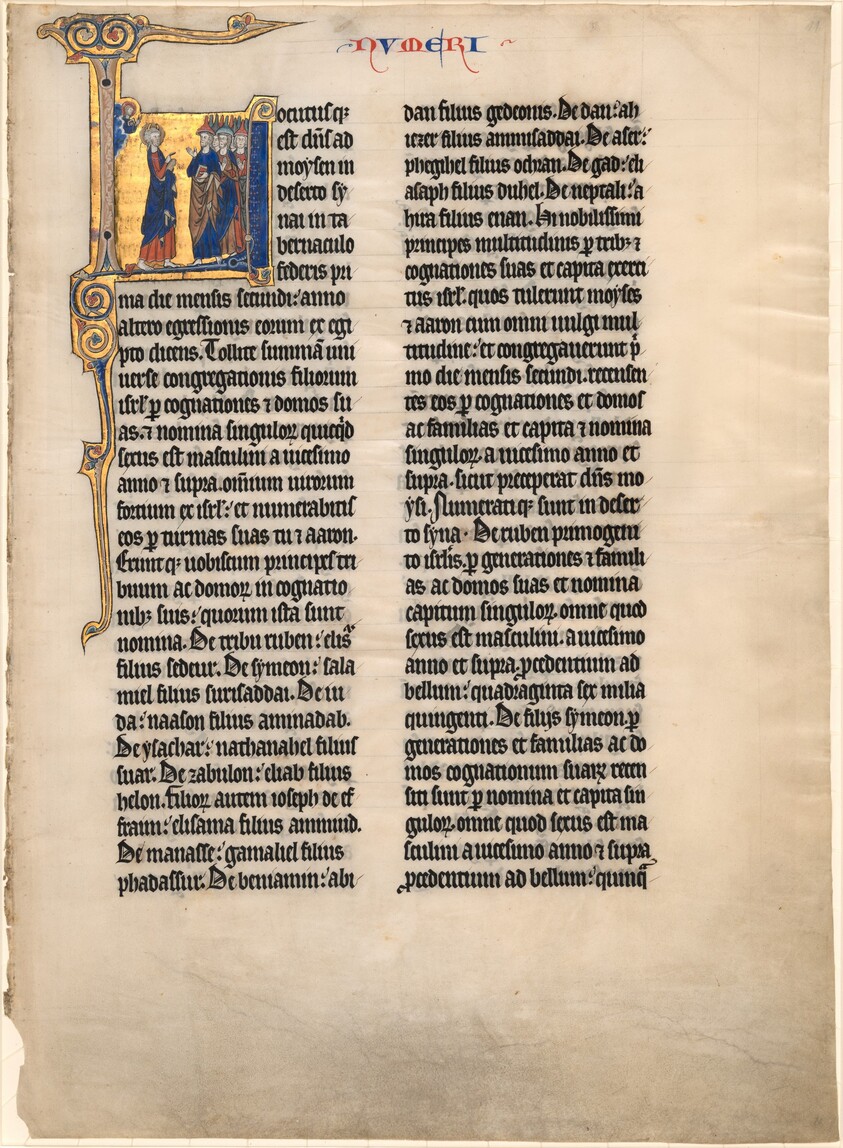 NUMERI
Locutusqꝫ
est dn̄s ad
moysen in
deserto sy
nai in ta
bernaculo
federis pri
ma die mensis secundi: anno
altero egressionis eorum ex egi
pto dicens. Tollite summā uni
uerse congregationis filiorum
isrl̓ ꝑ cognationes ⁊ domos su
as. ⁊ nomina singuloꝝ quicq̇d
sexus est masculini a uicesimo
anno ⁊ supra. om̄ium uirorum
fortium ex isrl̓: et numerabitis
eos ꝑ turmas suas tu ⁊ aaron.
Eruntqꝫ uobiscum principes tri
buum ac domoꝝ in cognatio
nibꝫ suis: quorum ista sunt
nomina. De tribu ruben: elis
filius sedeur. De symeon: sala
miel filius surisaddai. De iu
da: naason filius aminadab.
De ysachar: nathanahel filius
suar. De zabulon: eliab filius
helon. filioꝝ autem ioseph de ef
fraim: elisama filius ammiud.
De manasse: gamaliel filius
phadassur. De beniamin: abi
dan filius gedeonis. De dan: ah
iezer filius ammisaddai. De aser:
phegihel filius ochran. De gad: eli
asaph filius duhel. De neptali: a
hira filius enan. Hi nobilissimi
principes multitudinis ꝑ tribꝫ ⁊
cognationes suas et capita exerci
tus isrl̓. quos tulerunt moyses
⁊ aaron cum omni uulgi mul
titudine: et congregauerunt p̓
mo die mensis secundi. recensen
tes eos ꝑ cognationes et domos
ac familias et capita ⁊ nomina
singuloꝝ. a uicesimo anno et
supra. sicut preceperat dn̄s mo
ysi. Numeratiqꝫ sunt in deser
to syna. De ruben primogeni
to isrl̓is. ꝑ generationes ⁊ famili
as ac domos suas et nomina
capitum singuloꝝ. omne quod
sexus est masculini. a uicesimo
anno et supra. ꝓcedentium ad
bellum: quadraginta sex milia
quingenti. De filijs symeon. ꝑ
generationes et familias ac do
mos cognationum suaꝝ recen
siti sunt ꝑ nomina et capita sin
guloꝝ. omne quod sexus est ma
sculini a uicesimo anno ⁊ supra
ꝓcedentium ad bellum: quinq̄